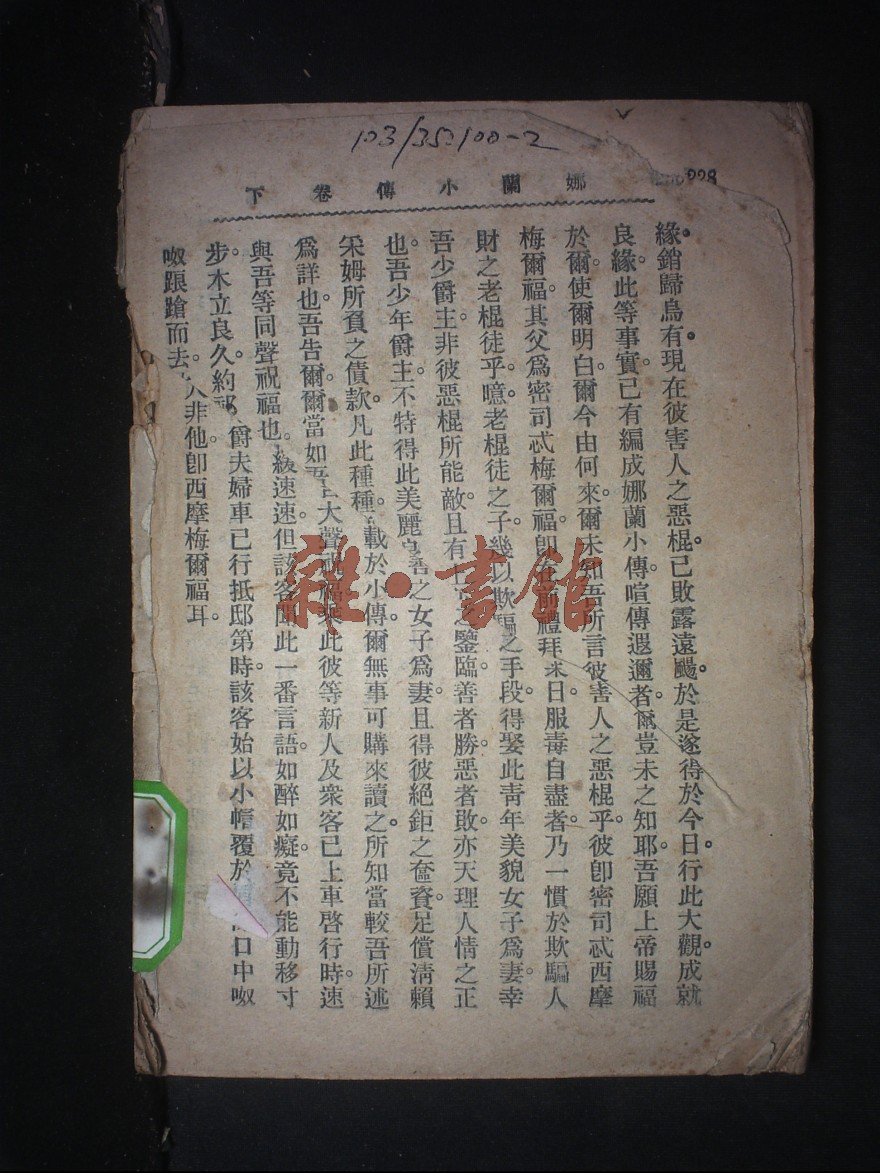 103/35100-2
娜蘭小傳卷下
緣。銷歸烏有。現在彼害人之惡棍。已敗露遠颺。於是遂得於今日。行此大觀。成就
良緣。此等事實。已有編成娜蘭小傳。喧傳遐邇者。爾豈未之知耶。吾願上帝賜福
於爾。使爾明白。爾今由何來。爾未知吾所言彼害人之惡棍乎。彼卽密司忒西摩
梅爾福。其父爲密司忒梅爾福。卽在前禮拜 日。服毒自盡者。乃一慣於欺騙人
財之老棍徒乎。噫。老棍徒之子。幾以欺騙之手段。得娶此靑年美貌女子爲妻。幸
吾少爵主。非彼惡棍所能敵。且有 之鑒臨。善者勝。惡者敗。亦天理人情之正
也。吾少年爵主。不特得此美麗 善之女子爲妻。且得彼絕鉅之奩資。足償淸賴
釆姆所負之債款。凡此種種。 載於小傳。爾無事可購來讀之。所知當較吾所述
爲詳也。吾告爾。爾當如吾 大聲祝福。 此彼等新人及衆客。已上車啓行時。速
與吾等同聲祝福也。 速速。但該客聞此一番言語。如醉如癡。竟不能動移寸
步。木立良久。約 爵夫婦車已行抵邸第時。該客始以小帽覆於 口中呶
呶。踉蹌而去。 人非他。卽西摩梅爾福耳。
雜·書館